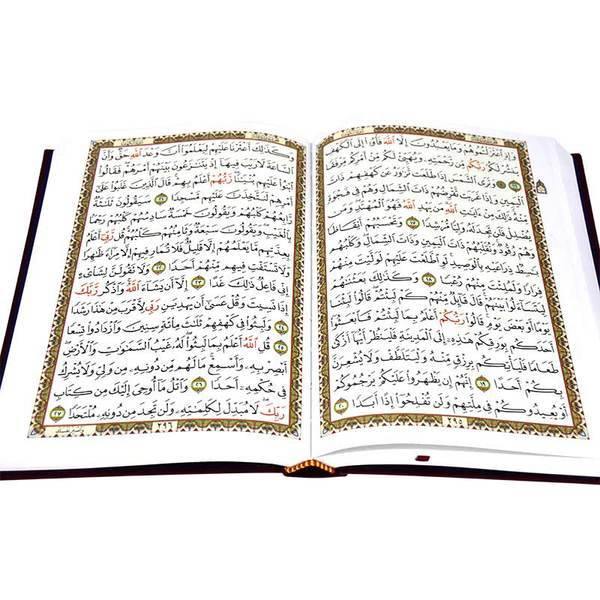 وَإِذِ ٱعْتَزَلْتُمُوهُمْ وَمَا يَعْبُدُونَ إِلَّا ٱللَّهَ فَأْوُۥٓا۟ إِلَى ٱلْكَهْفِ
يَنشُرْ لَكُمْ رَبُّكُم مِّن رَّحْمَتِهِۦ وَيُهَيِّئْ لَكُم مِّنْ أَمْرِكُم مِّرْفَقًا
١٦ ۞ وَتَرَى ٱلشَّمْسَ إِذَا طَلَعَت تَّزَٰوَرُ عَن كَهْفِهِمْ ذَاتَ
ٱلْيَمِينِ وَإِذَا غَرَبَت تَّقْرِضُهُمْ ذَاتَ ٱلشِّمَالِ وَهُمْ فِى فَجْوَةٍ
مِّنْهُ ذَٰلِكَ مِنْ ءَايَٰتِ ٱللَّهِ مَن يَهْدِ ٱللَّهُ فَهُوَ ٱلْمُهْتَدِ وَمَن
يُضْلِلْ فَلَن تَجِدَ لَهُۥ وَلِيًّا مُّرْشِدًا ١٧ وَتَحْسَبُهُمْ أَيْقَاظًا
وَهُمْ رُقُودٌ وَنُقَلِّبُهُمْ ذَاتَ ٱلْيَمِينِ وَذَاتَ ٱلشِّمَالِ وَكَلْبُهُم
بَٰسِطٌ ذِرَاعَيْهِ بِٱلْوَصِيدِ لَوِ ٱطَّلَعْتَ عَلَيْهِمْ لَوَلَّيْتَ مِنْهُمْ
فِرَارًا وَلَمُلِئْتَ مِنْهُمْ رُعْبًا ١٨ وَكَذَٰلِكَ بَعَثْنَٰهُمْ
لِيَتَسَآءَلُوا۟ بَيْنَهُمْ قَالَ قَآئِلٌ مِّنْهُمْ كَمْ لَبِثْتُمْ قَالُوا۟ لَبِثْنَا
يَوْمًا أَوْ بَعْضَ يَوْمٍ قَالُوا۟ رَبُّكُمْ أَعْلَمُ بِمَا لَبِثْتُمْ فَٱبْعَثُوٓا۟
أَحَدَكُم بِوَرِقِكُمْ هَٰذِهِۦٓ إِلَى ٱلْمَدِينَةِ فَلْيَنظُرْ أَيُّهَآ أَزْكَىٰ
طَعَامًا فَلْيَأْتِكُم بِرِزْقٍ مِّنْهُ وَلْيَتَلَطَّفْ وَلَا يُشْعِرَنَّ
بِكُمْ أَحَدًا ١٩ إِنَّهُمْ إِن يَظْهَرُوا۟ عَلَيْكُمْ يَرْجُمُوكُمْ
أَوْ يُعِيدُوكُمْ فِى مِلَّتِهِمْ وَلَن تُفْلِحُوٓا۟ إِذًا أَبَدًا ٢٠
٢٩٥
وَكَذَٰلِكَ أَعْثَرْنَا عَلَيْهِمْ لِيَعْلَمُوٓا۟ أَنَّ وَعْدَ ٱللَّهِ حَقٌّ وَأَنَّ
ٱلسَّاعَةَ لَا رَيْبَ فِيهَآ إِذْ يَتَنَٰزَعُونَ بَيْنَهُمْ أَمْرَهُمْ فَقَالُوا۟
ٱبْنُوا۟ عَلَيْهِم بُنْيَٰنًا رَّبُّهُمْ أَعْلَمُ بِهِمْ قَالَ ٱلَّذِينَ غَلَبُوا۟ عَلَىٰٓ
أَمْرِهِمْ لَنَتَّخِذَنَّ عَلَيْهِم مَّسْجِدًا ٢١ سَيَقُولُونَ ثَلَٰثَةٌ
رَّابِعُهُمْ كَلْبُهُمْ وَيَقُولُونَ خَمْسَةٌ سَادِسُهُمْ كَلْبُهُمْ رَجْمًۢا
بِٱلْغَيْبِ وَيَقُولُونَ سَبْعَةٌ وَثَامِنُهُمْ كَلْبُهُمْ قُل رَّبِّىٓ أَعْلَمُ
بِعِدَّتِهِم مَّا يَعْلَمُهُمْ إِلَّا قَلِيلٌ فَلَا تُمَارِ فِيهِمْ إِلَّا مِرَآءً ظَٰهِرًا
وَلَا تَسْتَفْتِ فِيهِم مِّنْهُمْ أَحَدًا ٢٢ وَلَا تَقُولَنَّ لِشَا۟ىْءٍ
إِنِّى فَاعِلٌ ذَٰلِكَ غَدًا ٢٣ إِلَّآ أَن يَشَآءَ ٱللَّهُ وَٱذْكُر رَّبَّكَ
إِذَا نَسِيتَ وَقُلْ عَسَىٰٓ أَن يَهْدِيَنِ رَبِّى لِأَقْرَبَ مِنْ هَٰذَا رَشَدًا
٢٤ وَلَبِثُوا۟ فِى كَهْفِهِمْ ثَلَٰثَ مِا۟ئَةٍ سِنِينَ وَٱزْدَادُوا۟ تِسْعًا
٢٥ قُلِ ٱللَّهُ أَعْلَمُ بِمَا لَبِثُوا۟ لَهُۥ غَيْبُ ٱلسَّمَٰوَٰتِ وَٱلْأَرْضِ
أَبْصِرْ بِهِۦ وَأَسْمِعْ مَا لَهُم مِّن دُونِهِۦ مِن وَلِىٍّ وَلَا يُشْرِكُ
فِى حُكْمِهِۦٓ أَحَدًا ٢٦ وَٱتْلُ مَآ أُوحِىَ إِلَيْكَ مِن كِتَابِ
رَبِّكَ لَا مُبَدِّلَ لِكَلِمَٰتِهِۦ وَلَن تَجِدَ مِن دُونِهِۦ مُلْتَحَدًا ٢٧
٢٩٦